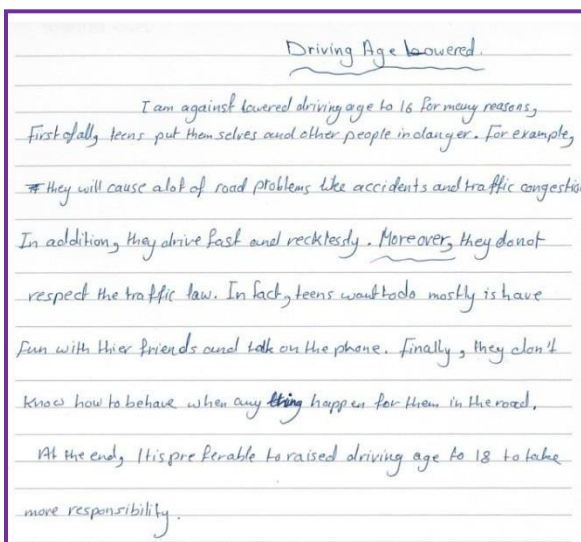 Driving Age Lowered.
I am against lowered driving age to 16 for many reasons,
First of all, teens put them selves and other people in danger. For example,
they will cause alot of road problems like accidents and traffic congestion
In addition, they drive fast and recklessly. Moreover, they donot
respect the traffic law. In fact, teens want to do mostly is have
fun with thier friends and talk on the phone. Finally, they don't
know how to behave when any thing happen for them in the road.
At the end, It is preferable to raised driving age to 18 to take
more responsibility.